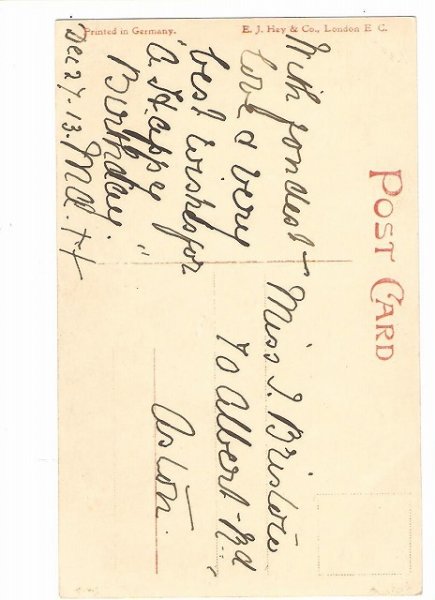 POST CARD
Printed in Germany.
E. J. Hey & Co., London E C.
With fondest
love & very
best wishes for
"A Happy
Birthday"
Dec 27. 13. Ma. xx
Miss I. Bristow
70 Albert Rd
Aston.